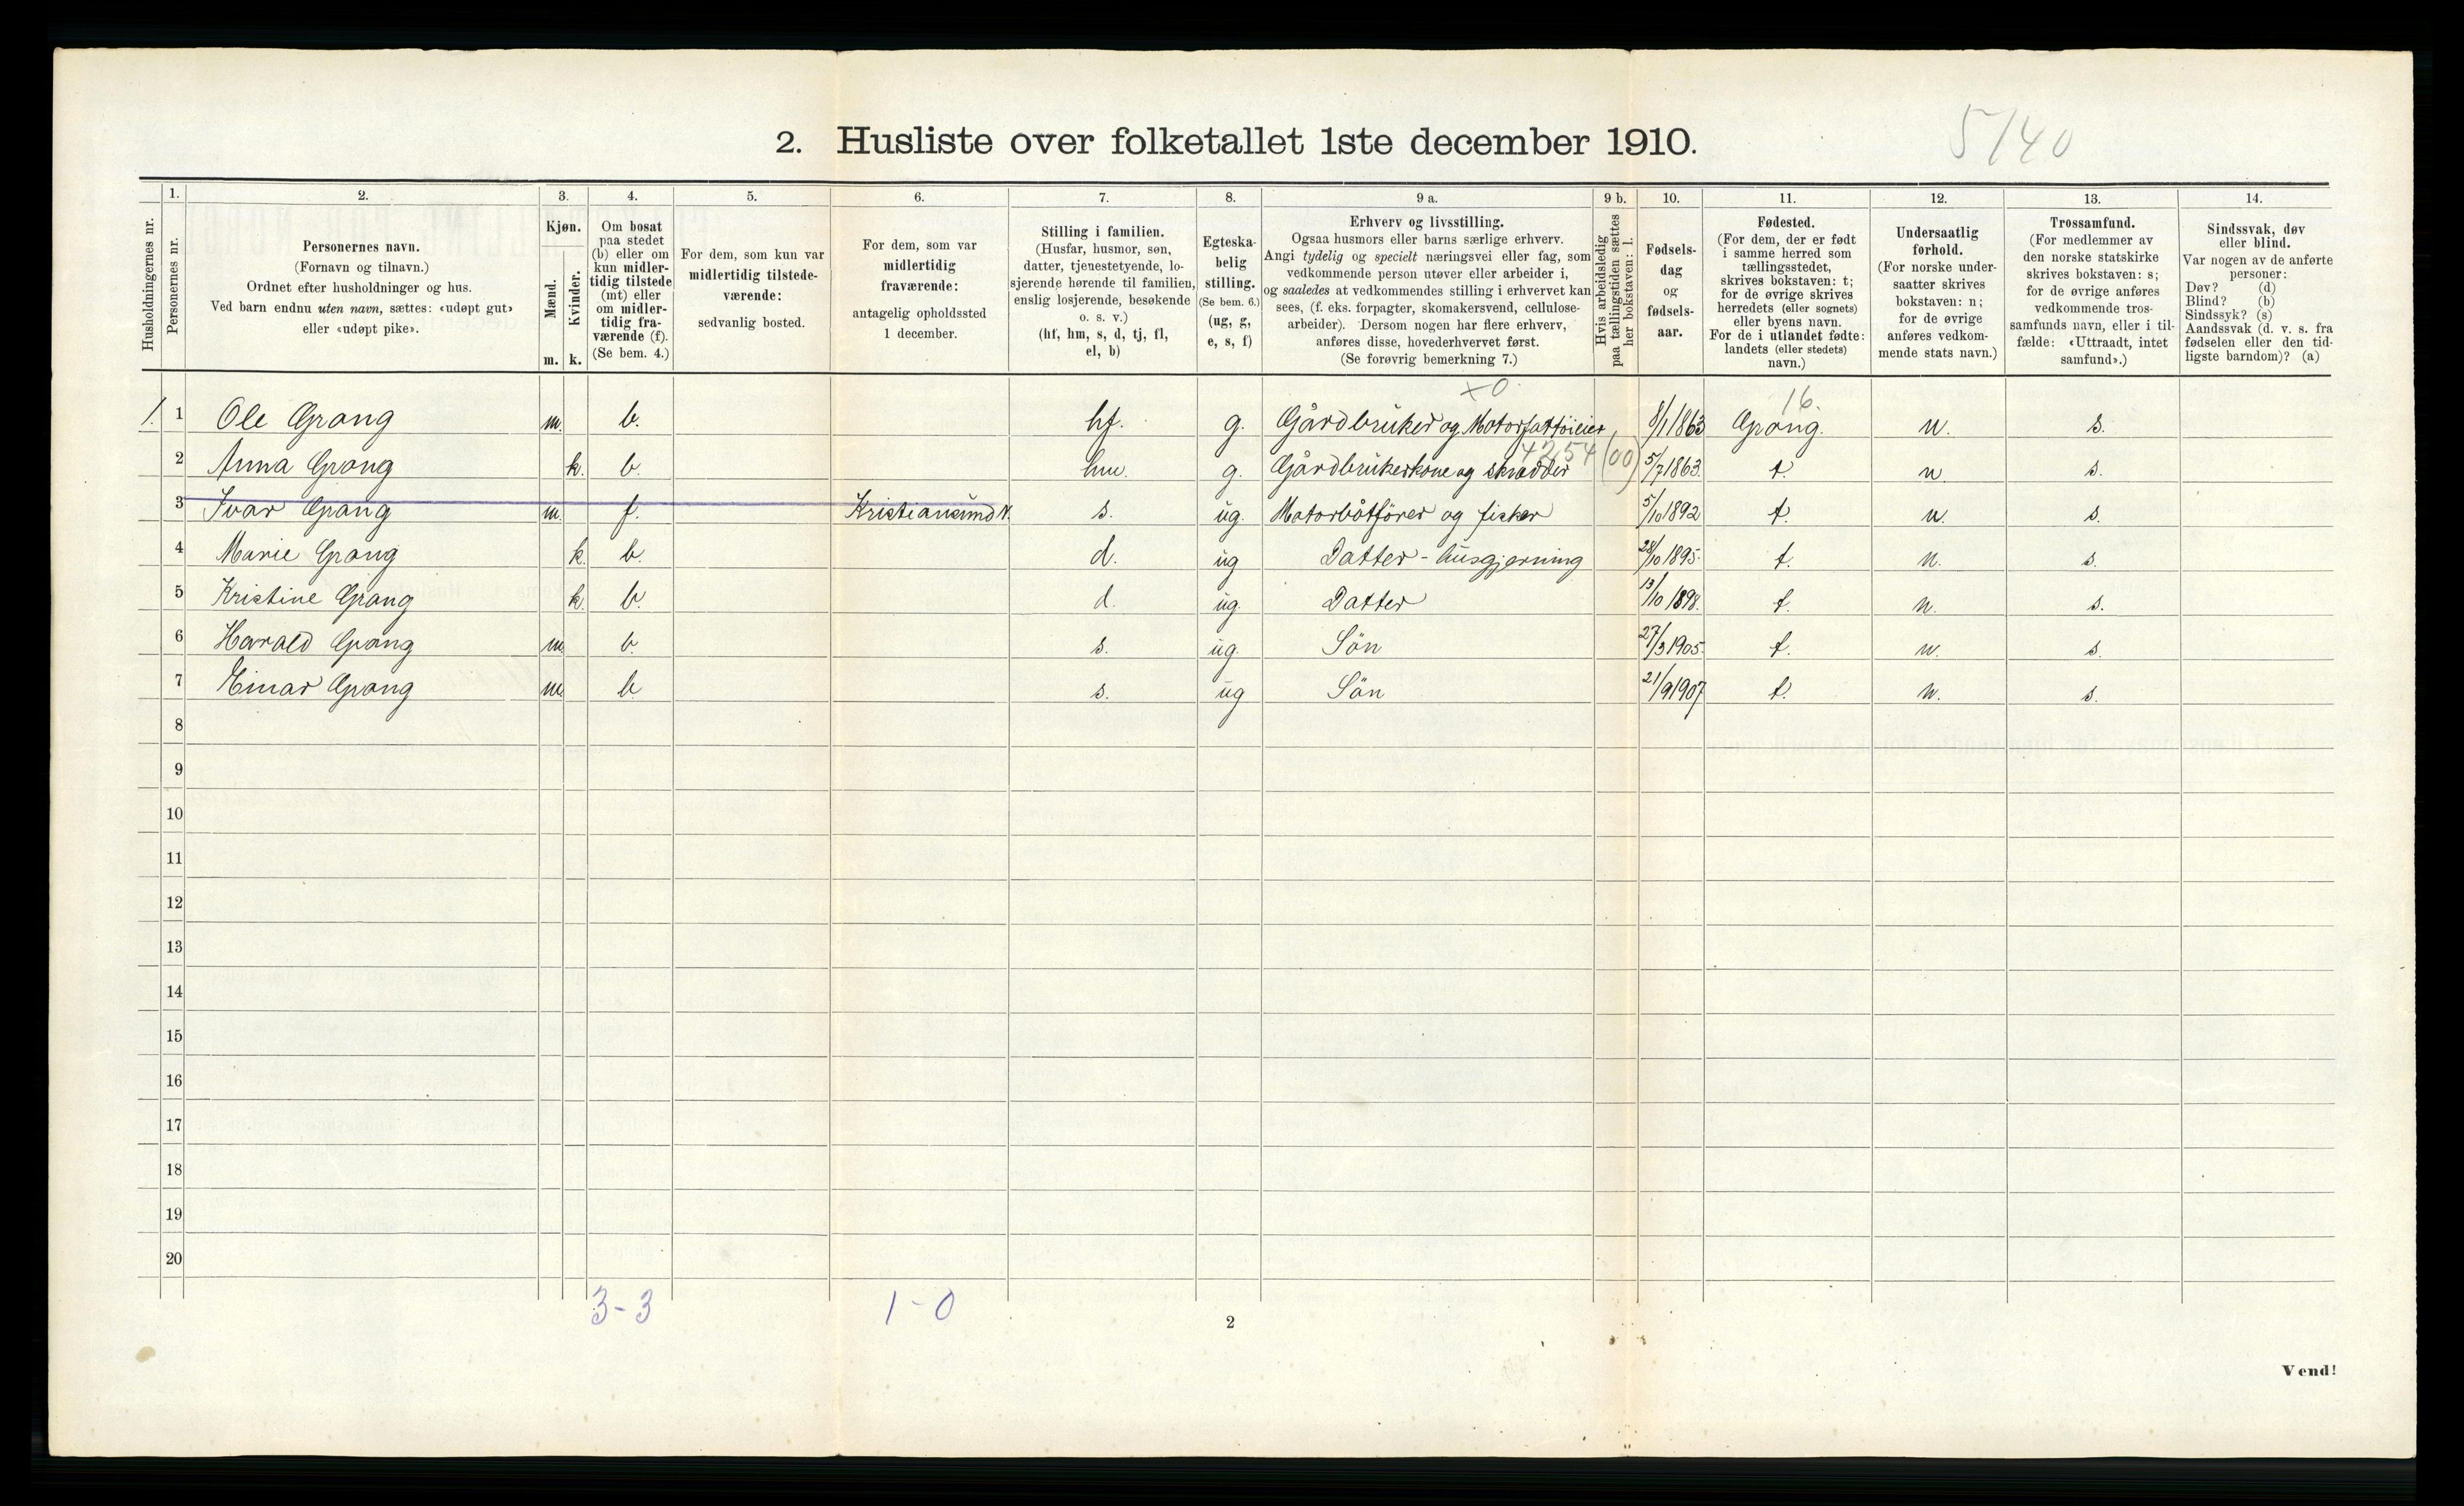 5/40
2. Husliste over folketallet 1ste december 1910.
1. 2. 3. 4. 5. 6. 7. 8. 9 a. 9 b. 10. 11. 12. 13. 14.
Husholdningernes nr.
Personernes nr.
Personernes navn.
(Fornavn og tilnavn.)
Ordnet efter husholdninger og hus.
Ved barn endnu uten navn, sættes: «udøpt gut»
eller «udøpt pike».
Kjøn.
Mænd.
Kvinder.
m. k.
Om bosat
paa stedet
(b) eller om
kun midler-
tidig tilstede
(mt) eller
om midler-
tidig fra-
værende (f).
(Se bem. 4.)
For dem, som kun var
midlertidig tilstede-
værende:
sedvanlig bosted.
For dem, som var
midlertidig
fraværende:
antagelig opholdssted
1 december.
Stilling i familien.
(Husfar, husmor, søn,
datter, tjenestetyende, lo-
sjerende hørende til familien,
enslig losjerende, besøkende
o. s. v.)
(hf, hm, s, d, tj, fl,
el, b)
Egteska-
belig
stilling.
(Se bem. 6.)
(ug, g,
e, s, f)
Erhverv og livsstilling.
Ogsaa husmors eller barns særlige erhverv.
Angi tydelig og specielt næringsvei eller fag, som
vedkommende person utøver eller arbeider i,
og saaledes at vedkommendes stilling i erhvervet kan
sees, (f. eks. forpagter, skomakersvend, cellulose-
arbeider). Dersom nogen har flere erhverv,
anføres disse, hovederhvervet først.
(Se forøvrig bemerkning 7.)
Hvis arbeidsledig
paa tællingstiden sættes
her bokstaven: l.
Fødsels-
dag
og
fødsels-
aar.
Fødested.
(For dem, der er født
i samme herred som
tællingsstedet,
skrives bokstaven: t;
for de øvrige skrives
herredets (eller sognets)
eller byens navn.
For de i utlandet fødte:
landets (eller stedets)
navn.)
Undersaatlig
forhold.
(For norske under-
saatter skrives
bokstaven: n;
for de øvrige
anføres vedkom-
mende stats navn.)
Trossamfund.
(For medlemmer av
den norske statskirke
skrives bokstaven: s;
for de øvrige anføres
vedkommende tros-
samfunds navn, eller i til-
fælde: «Uttraadt, intet
samfund».)
Sindssvak, døv
eller blind.
Var nogen av de anførte
personer:
Døv? (d)
Blind? (b)
Sindssyk? (s)
Aandssvak (d. v. s. fra
fødselen eller den tid-
ligste barndom)? (a)
x0 16.
1. 1 Ole Grong m. b. hf. g. Gårdbruker og Motorfartöieier 8/1 1863 Grong. n. s.
4254 (00)
2 Anna Grong k. b. hm. g. Gårdbrukerkone og skrædder 5/7 1863. t. n. s.
3 Ivar Grong m. f. Kristiansund N. s. ug. Motorbåtförer og fisker 5/10 1892 t. n. s.
4 Marie Grong k. b. d. ug Datter - husgjerning 28/10 1895. t. n. s.
5 Kristine Grong k. b. d. ug. Datter 13/10 1898. t. n. s.
6 Harald Grong m. b. s. ug. Sön 27/3 1905. t. n. s.
7 Einar Grong m. b. s. ug Sön 21/9 1907 t. n. s.
8
9
10
11
12
13
14
15
16
17
18
19
20
3-3 1-0
2
Vend!